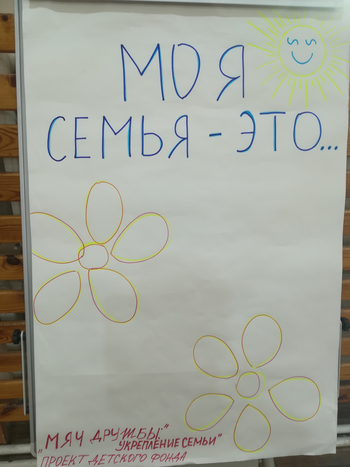 МОЯ
СЕМЬЯ - ЭТО...
"МЯЧ ДРУЖБЫ:"
УКРЕПЛЕНИЕ СЕМЬИ"
ПРОЕКТ ДЕТСКОГО ФОНДА